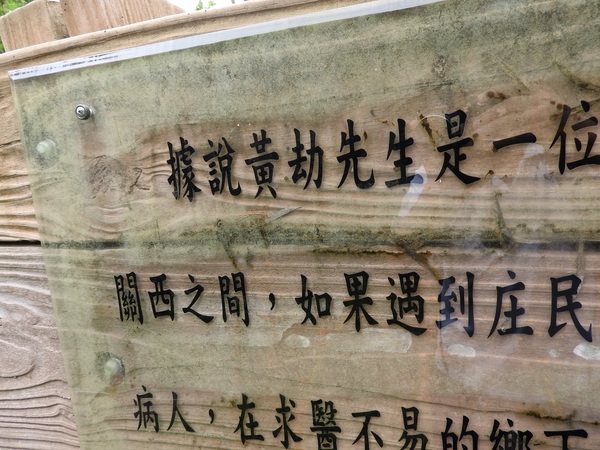 據說黃劫先生是一位
關西之間，如果遇到庄民
病人，在求醫不易的鄉下